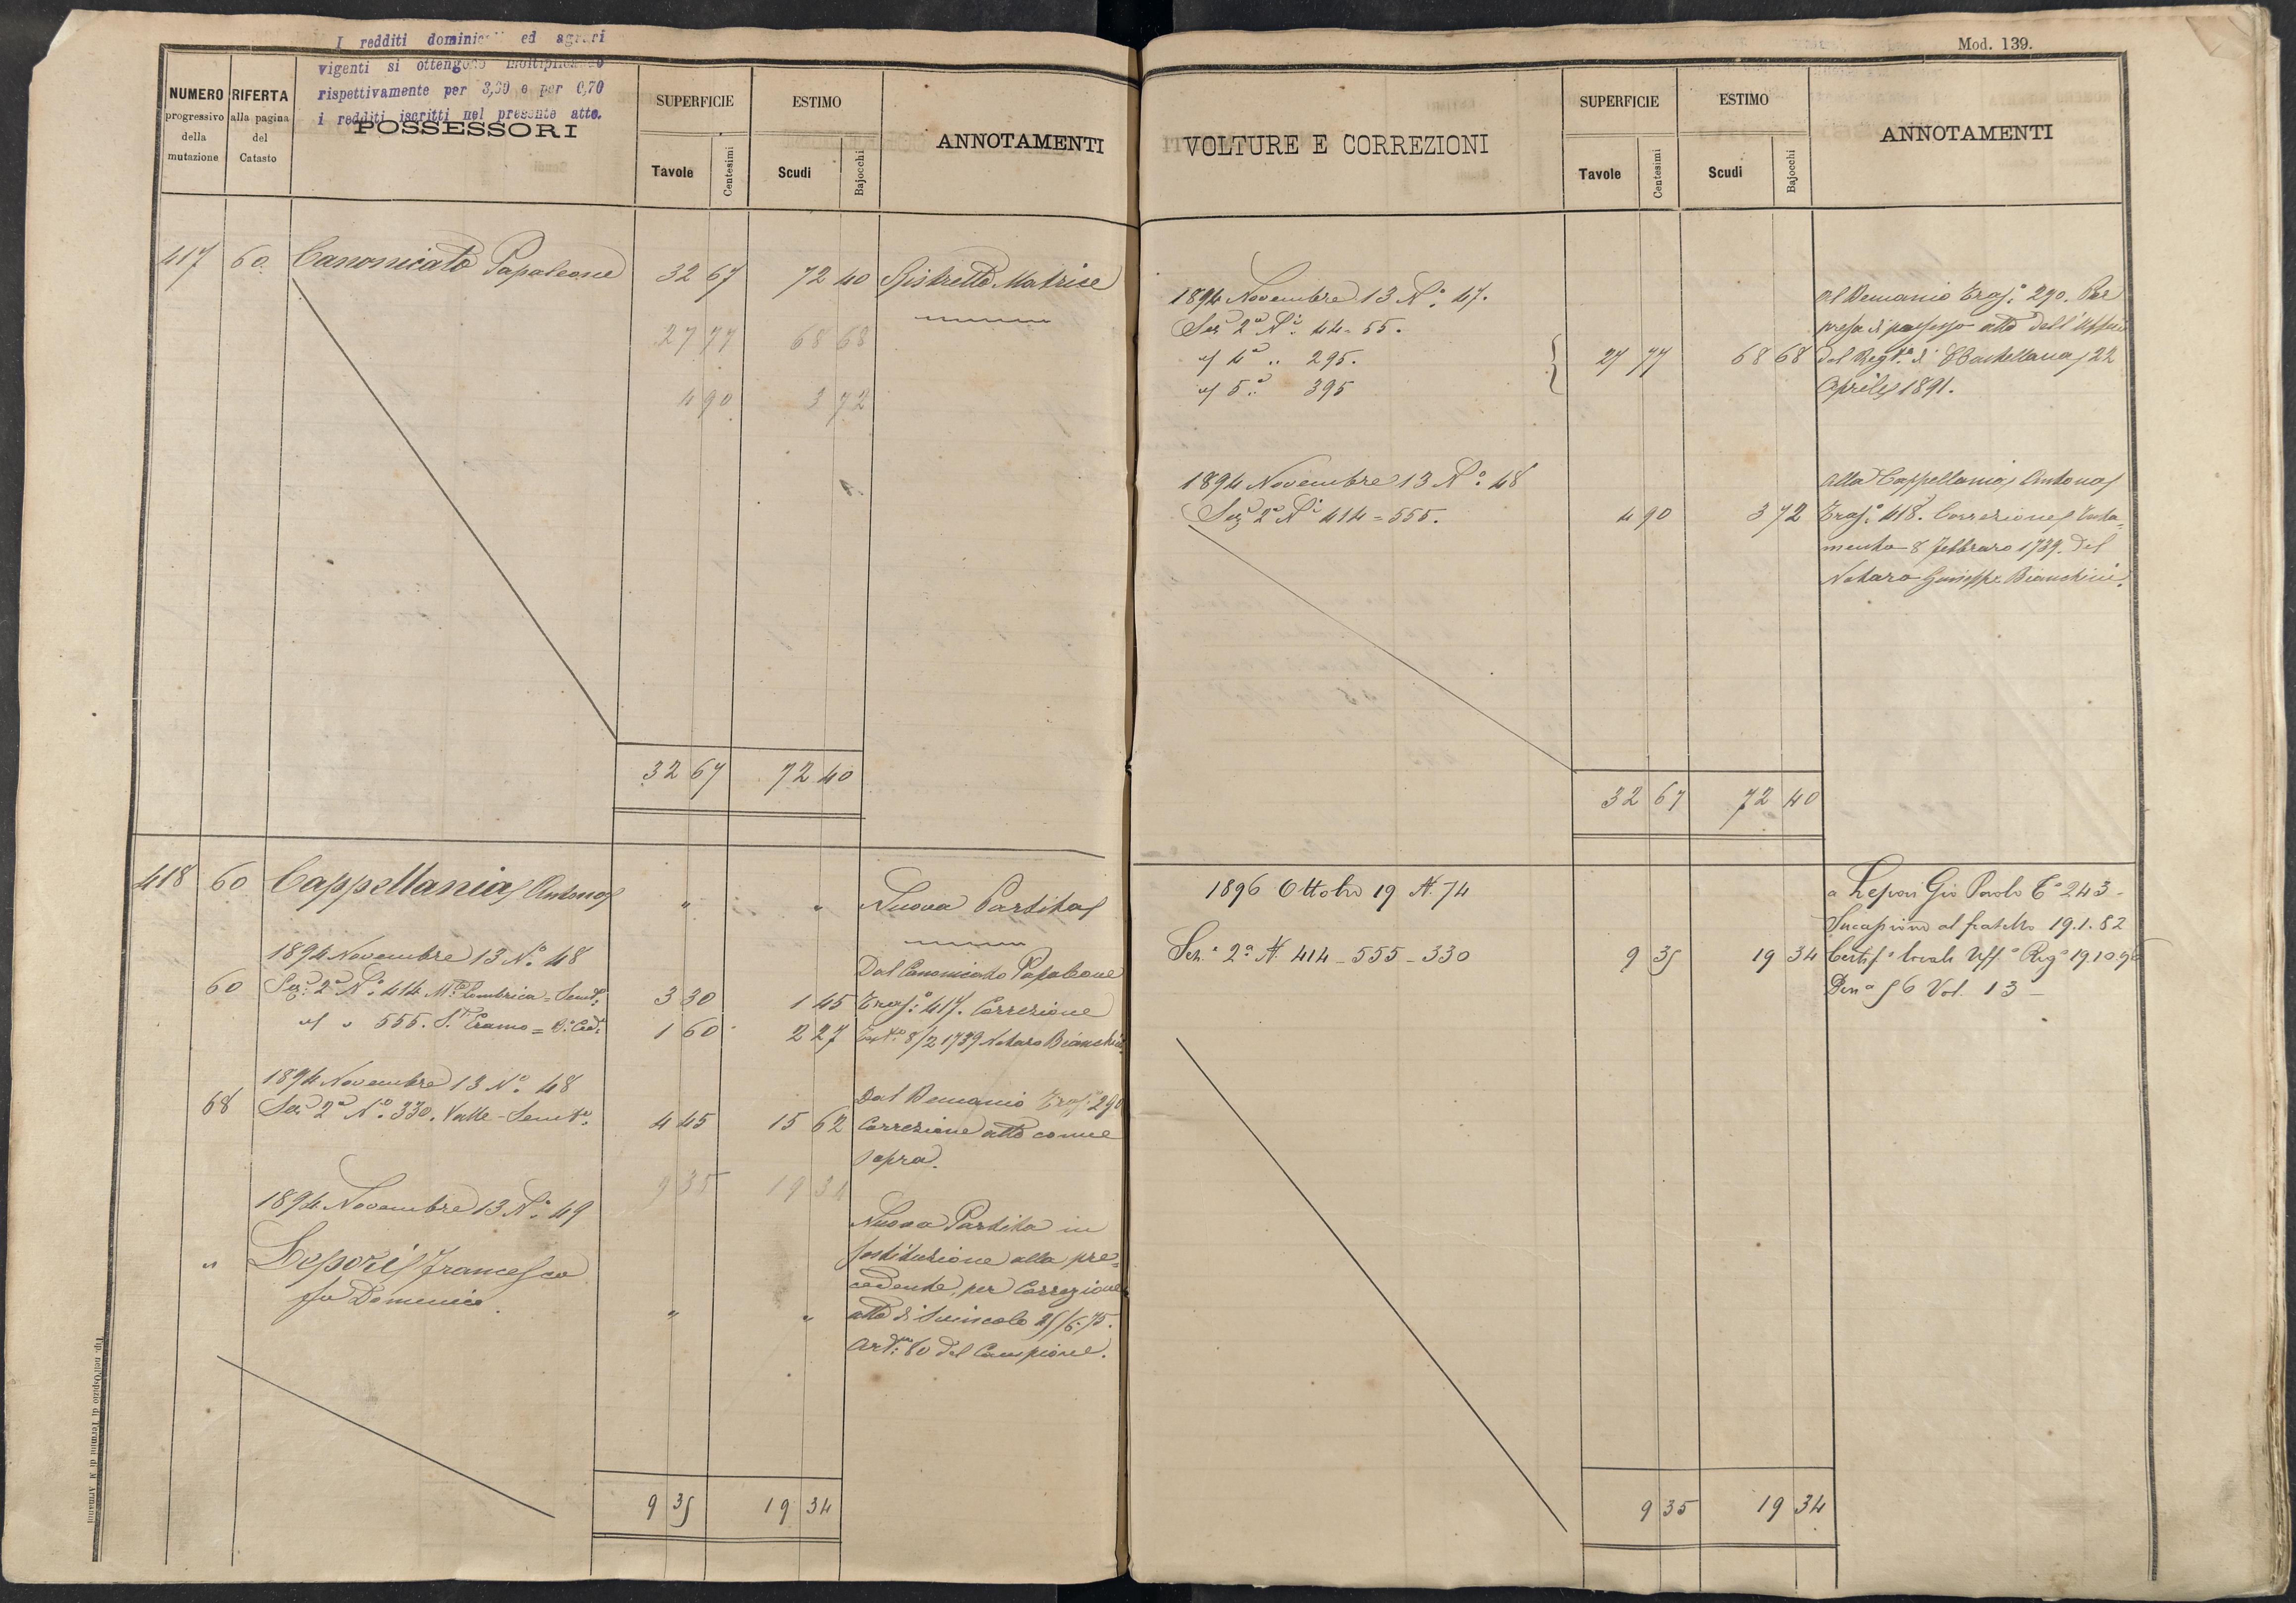 I redditi dominicali ed agrari
vigenti si ottengono moltiplicando
rispettivamente per 3,30 e per 0,70
i redditi iscritti nel presente atto.
NUMERO
progressivo
della
mutazione
RIFERTA
alla pagina
del
Catasto
POSSESSORI
SUPERFICIE
Tavole
Centesimi
ESTIMO
Scudi
Bajocchi
ANNOTAMENTI
417 60 Canonicato Papaleone 32 67 72 40 Ristretto Matrice
27 77 68 68
4 90 3 72
32 67 72 40
418 60 Cappellania Antona " " Nuova Partita
1894 Novembre 13 N.º 48
Dal Canonicato Papaleone
60 Sez. 2ª N.º 414. Lombrica = Semt.º 3 30 1 45 Tras.º 417. Correzione
" " 555. S.t Eramo = 1 60 2 27 8/2 1739 Notaro Bianchini
1894 Novembre 13 N.º 48
Dal Demanio Tras.º 290
68 Sez. 2ª N.º 330. Valle - Semt.º 4 45 15 62 Correzione atto come
sopra.
9 35 19 34
1894 Novembre 13 N.º 49
Nuova Partita in
sostituzione alla pre=
" Lepori Francesco
cedente, per Correzione
fu Domenico.
" " atto di Svincolo 25/6.75.
Art.: 80 del Campione.
9 35 19 34
Tip. nell'Ospizio di Termini di M. Armanni
Mod. 139.
VOLTURE E CORREZIONI
SUPERFICIE
Tavole
Centesimi
ESTIMO
Scudi
Bajocchi
ANNOTAMENTI
1894 Novembre 13 N.º 47.
Al Demanio Tras.º 290. Per
Sez. 2ª N.i 44 = 55.
presa di possesso atto dell'Ufficio
4ª " 295. 27 77 68 68 del Reg.º di C. Castellana 22
5ª " 395
Aprile 1891.
1894 Novembre 13 N.º 48
Alla Cappellania Antona
Sez. 2ª N.i 414 = 555. 4 90 3 72 Tras.º 418. Correzione Testa=
mento 8 Febbraro 1739. del
Notaro Giuseppe Bianchini.
32 67 72 40
1896 Ottobre 19 N. 74
a Lepori Gio Paolo T.º 243 -
Successione al fratello 19.1.82
Sez.ª 2ª N. 414 - 555 - 330 9 35 19 34 Certif.º Uff.º Reg.º 19.10.96
Den.ª 56 Vol. 13 -
9 35 19 34